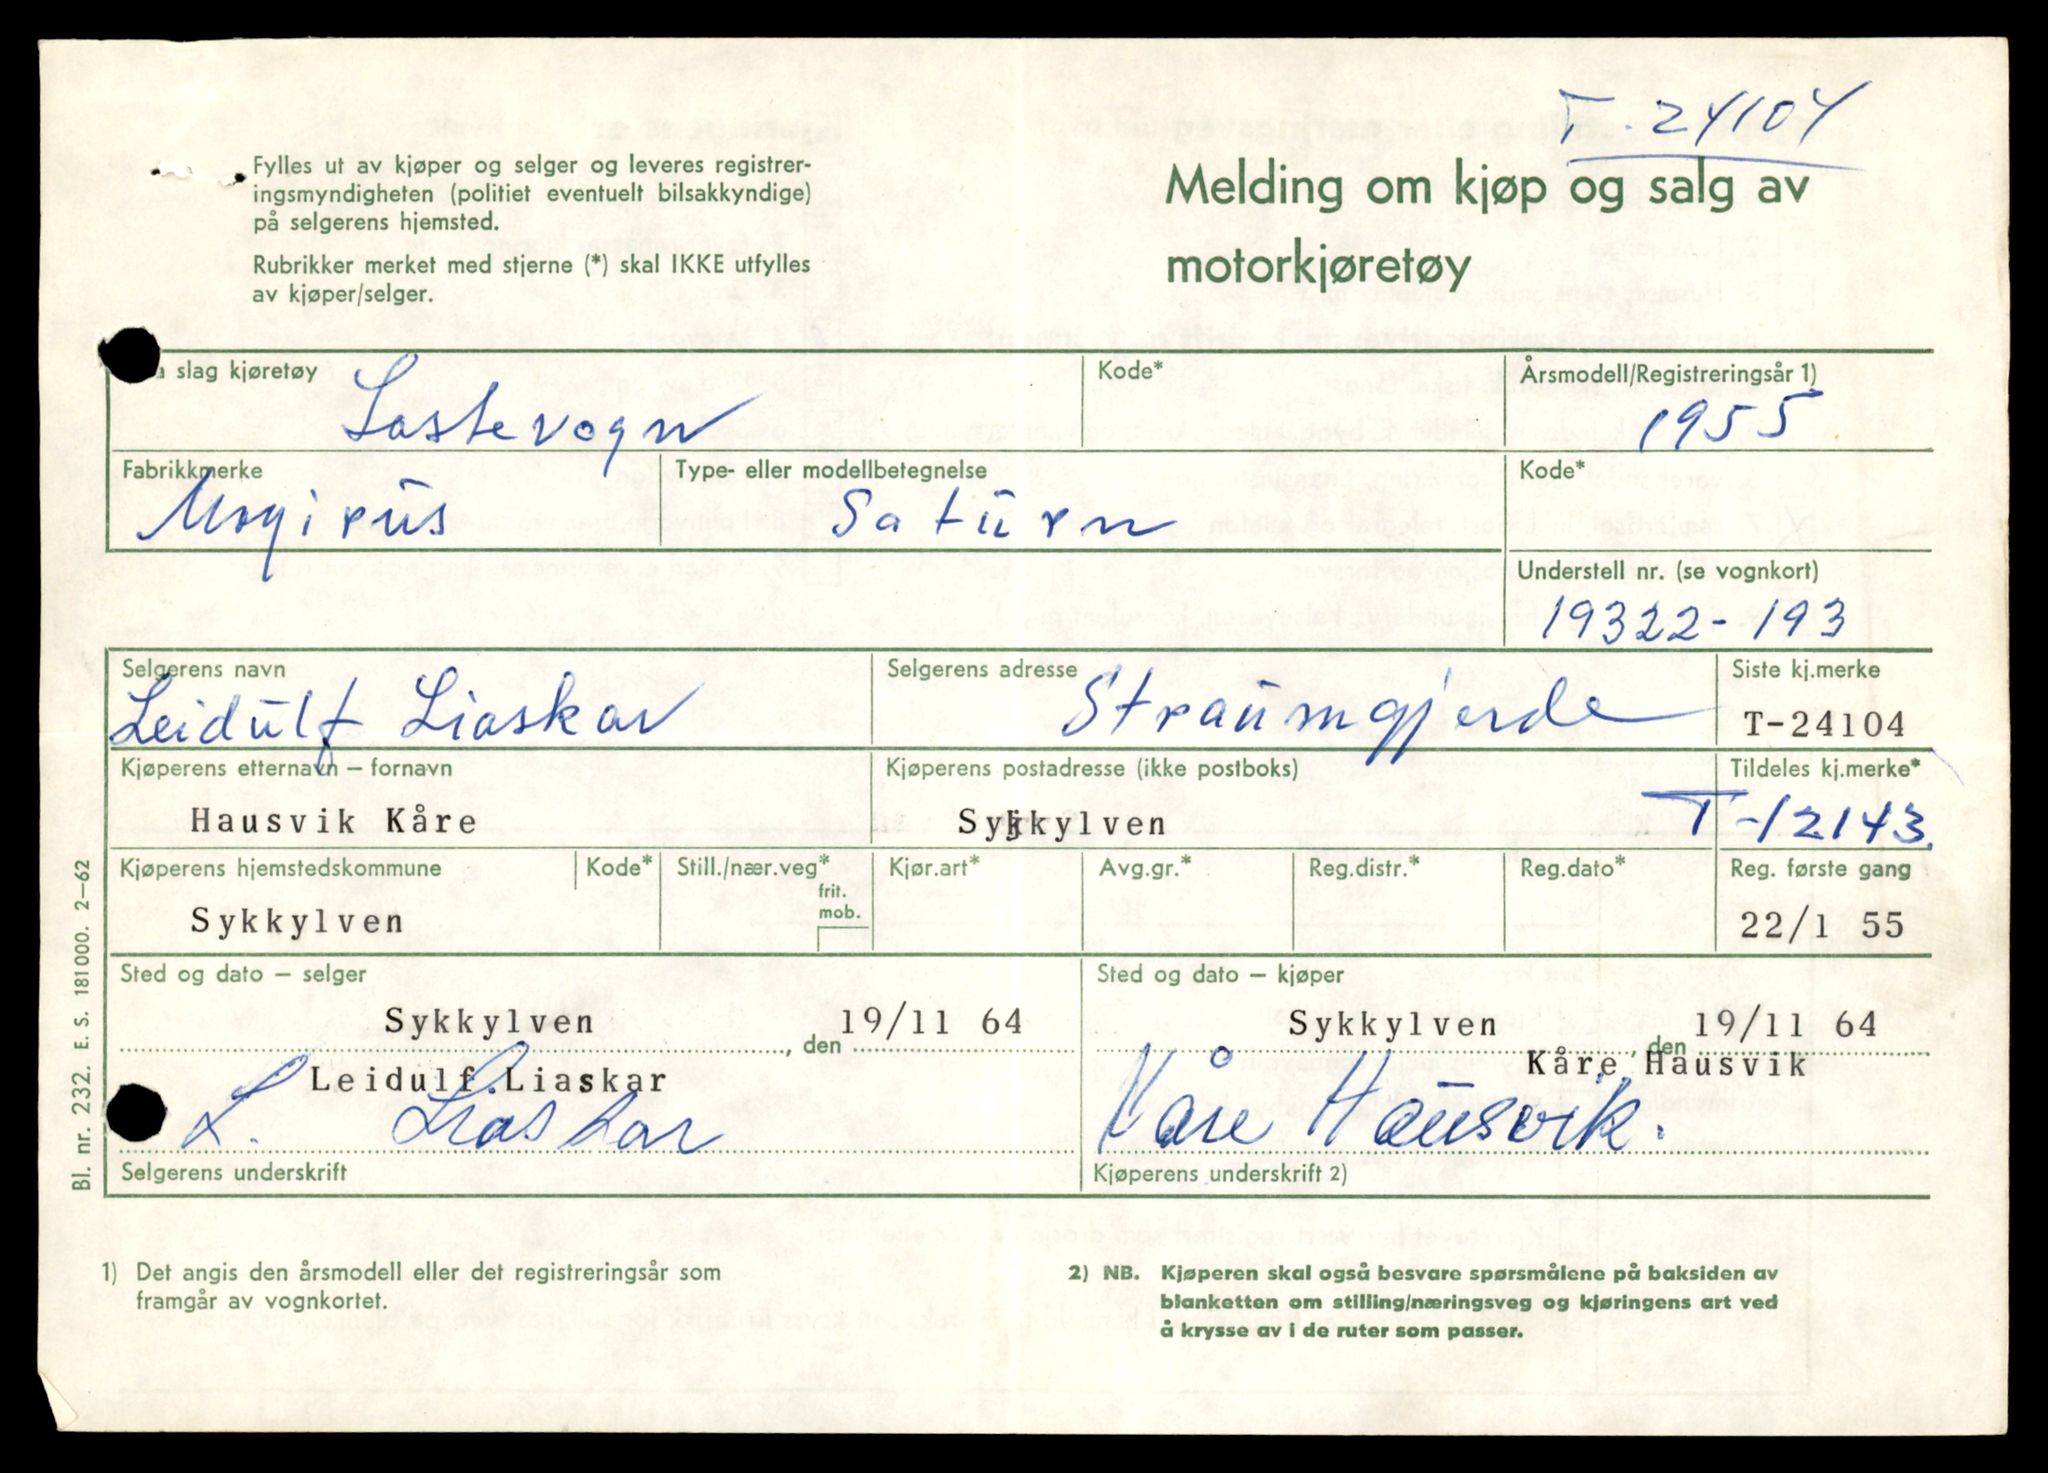 T-24104
Fylles ut av kjøper og selger og leveres registrer-
ingsmyndigheten (politiet eventuelt bilsakkyndige)
på selgerens hjemsted.
Rubrikker merket med stjerne (*) skal IKKE utfylles
av kjøper/selger.
Melding om kjøp og salg av
motorkjøretøy
slag kjøretøy
Lastevogn
Kode*
Årsmodell/Registreringsår 1)
1955
Fabrikkmerke
Magirus
Type- eller modellbetegnelse
Saturn
Kode*
Understell nr. (se vognkort)
19322-193
Selgerens navn
Leidulf Liaskar
Selgerens adresse
Straumgjerde
Siste kj.merke
T-24104
Kjøperens etternavn – fornavn
Hausvik Kåre
Kjøperens postadresse (ikke postboks)
Sykkylven
Tildeles kj.merke*
T-12143.
Kjøperens hjemstedskommune
Sykkylven
Kode*
Still./nær.veg*
frit.
mob.
Kjør.art*
Avg.gr.*
Reg.distr.*
Reg.dato*
Reg. første gang
22/1 55
Sted og dato – selger
Sykkylven , den 19/11 64
Leidulf Liaskar
L. Liaskar
Selgerens underskrift
Sted og dato – kjøper
Sykkylven , den 19/11 64
Kåre Hausvik
Kåre Hausvik.
Kjøperens underskrift 2)
Bl. nr. 232. E. S. 181000. 2–62
1) Det angis den årsmodell eller det registreringsår som
framgår av vognkortet.
2) NB. Kjøperen skal også besvare spørsmålene på baksiden av
blanketten om stilling/næringsveg og kjøringens art ved
å krysse av i de ruter som passer.